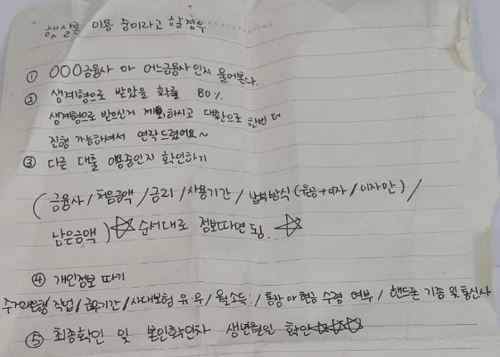 햇살론 이용 중이라고 할경우
① OOO금융사 아 어느금융사인지 물어본다.
② 생계형으로 받았을 확률 80%.
생계형으로 받으신거 제외하시고 대환으로 한번 더
진행 가능하셔서 연락드렸어요~
③ 다른 대출 이용중인지 확인하기
(금융사 / 처음금액 / 금리 / 사용기간 / 납부방식 (원금+이자 / 이자만) /
남은금액) ☆ 순서대로 정보따면 됨. ☆
④ 개인정보 따기
주거래은행 / 직업 / 근무기간 / 사대보험 유·무 / 월소득 / 통장 아 현금 수령 여부 / 핸드폰 기종 및 통신사
⑤ 최종확인 및 본인확인차 생년월일 확인☆☆☆